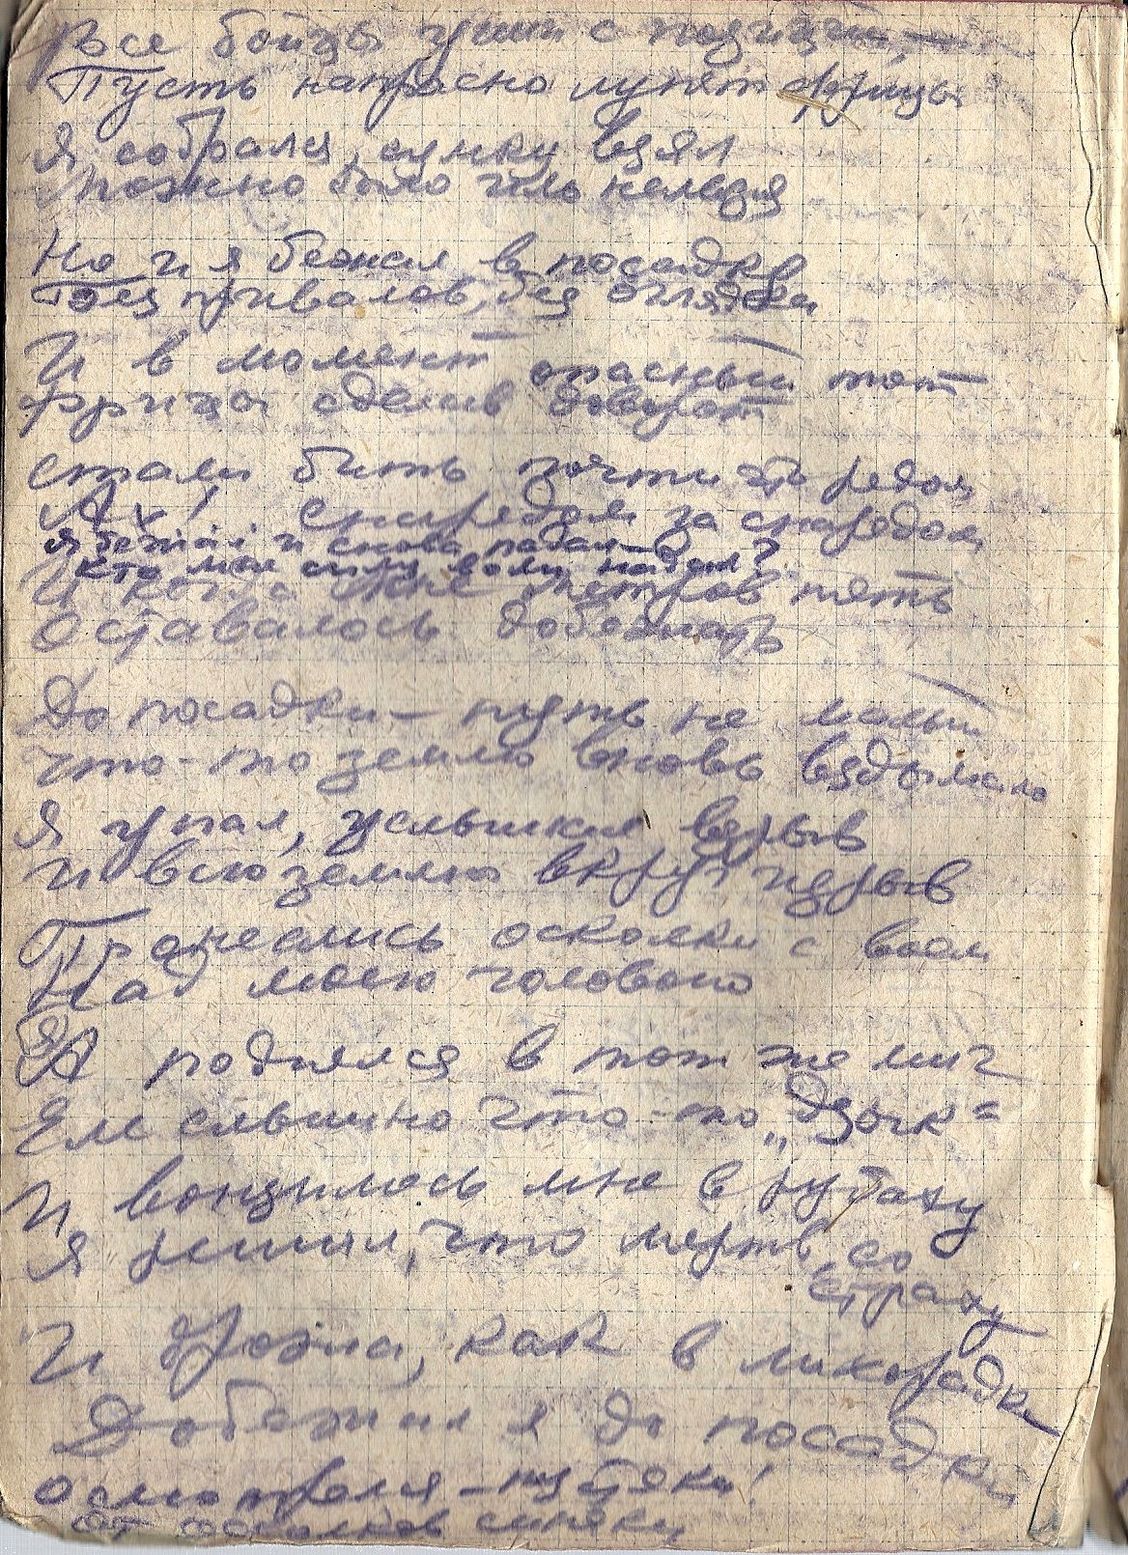 Все бойцы ушли с позиций, —
Пусть напрасно лупят фрицы
Я собрался, сумку взял
Можно было иль нельзя
Но и я бежал в посадку
Без привалов, без оглядки
И в момент опасный тот
Фрицы сделав доворот
стали бить почти что рядом
Ах, снарядом за снарядом
я бежал и снова падал
кто мне силу воли надал?
И когда мне метров пять
Оставалось добежать
До посадки — путь не малый
Что-то землю вновь вздымало
Я упал, услышал взрыв
И всю землю вкруг изрыв
Пронеслись осколки с воем
Над моею головою
Я поднялся в тот же миг
Ем слышно что-то „Дзык"
И вонзилось мне в рубаху
Я решил, что мертв со
страху
И дрожа, как в лихорадке
Добежал я до посадки
осмотрелся —
от осколков